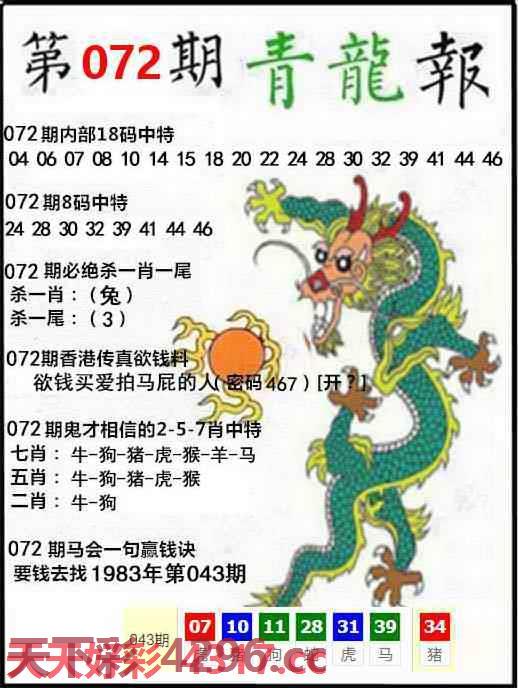 第072期青龍報
072期内部18码中特
04 06 07 08 10 14 15 18 20 22 24 28 30 32 39 41 44 46
072期8码中特
24 28 30 32 39 41 44 46
072期必绝杀一肖一尾
杀一肖：(兔)
杀一尾：(3)
072期香港传真欲钱料
欲钱买爱拍马屁的人(密码467)[开?]
072期鬼才相信的2-5-7肖中特
七肖：牛-狗-猪-虎-猴-羊-马
五肖：牛-狗-猪-虎-猴
二肖：牛-狗
072期马会一句赢钱诀
要钱去找1983年第043期
043期 07 10 11 28 31 39 34
狗 蛇 虎 马 猪
天天好彩4396.cc